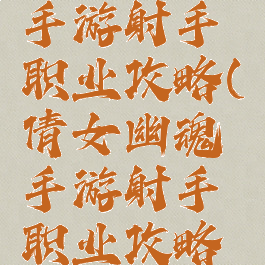 手游射手
职业攻略(
倩女幽魂
手游射手
职业攻略